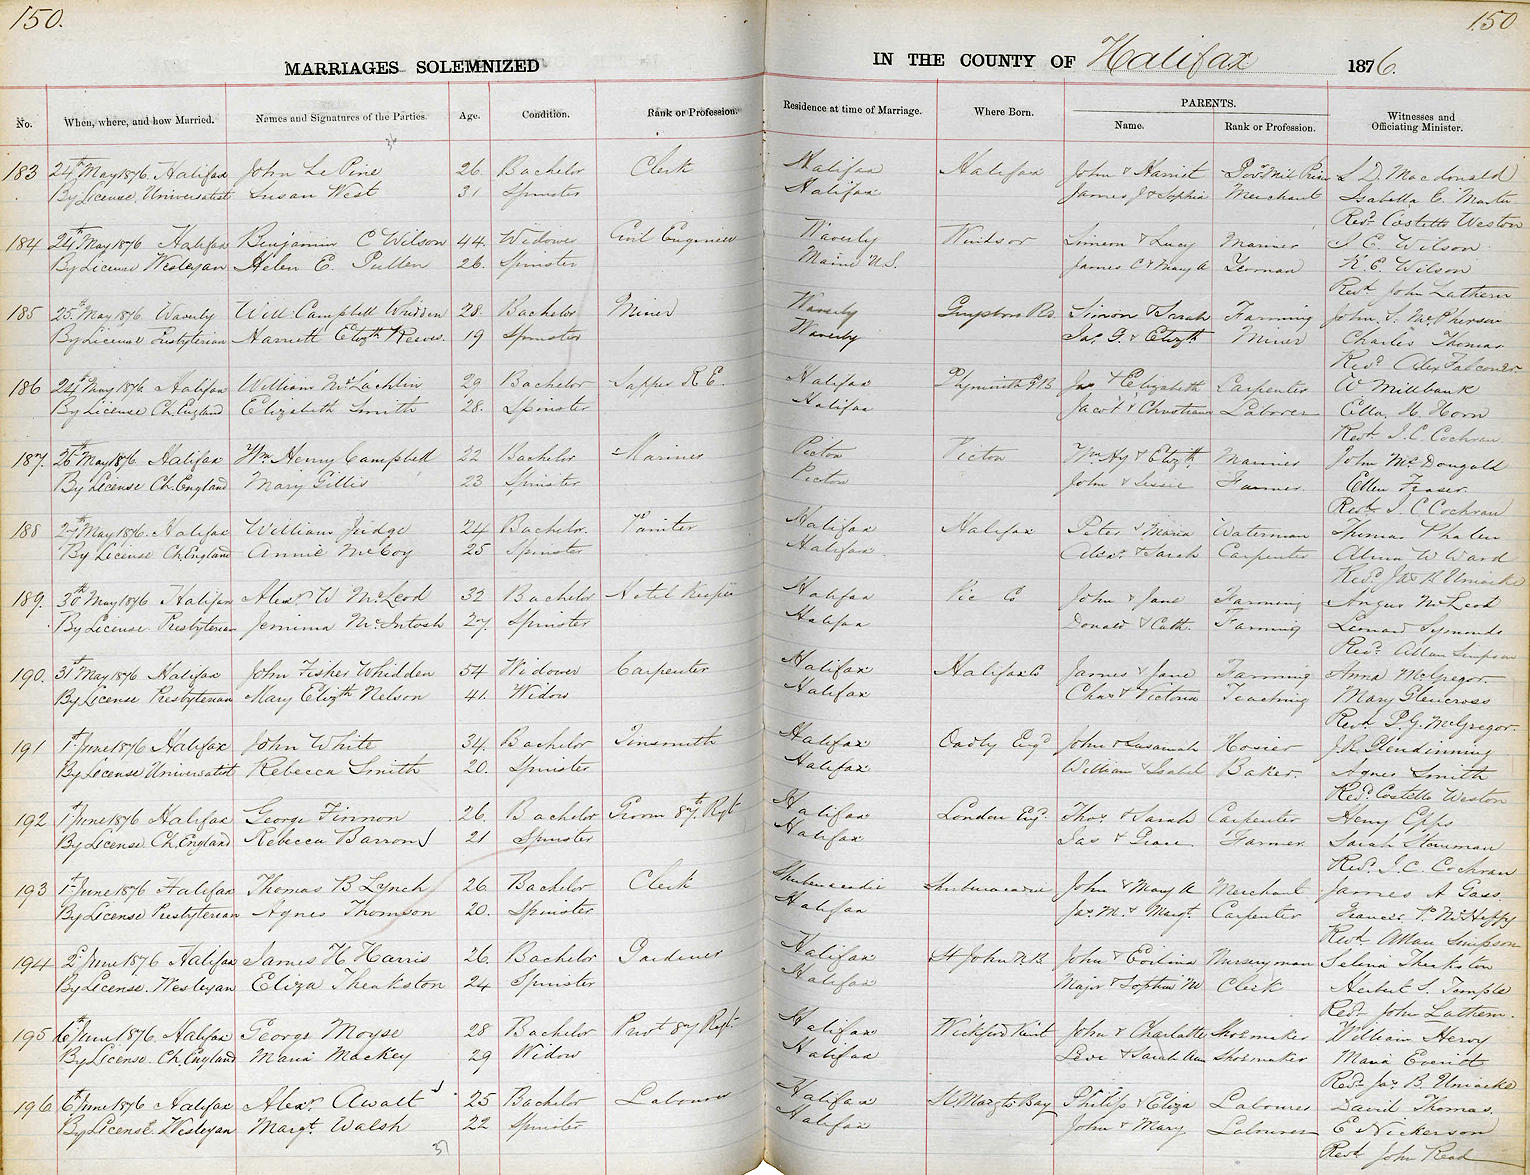 150.
150
MARRIAGES SOLEMNIZED IN THE COUNTY OF Halifax 1876.
No. When, where, and how Married. Names and Signatures of the Parties. Age. Condition. Rank or Profession. Residence at time of Marriage. Where Born. PARENTS. Name. Rank or Profession. Witnesses and Officiating Minister.
183 24th May 1876 Halifax John Le Pine 26 Bachelor Clerk Halifax Halifax John & Harriet S. D. Macdonald
By License, Universalist Susan West 31 Spinster Halifax James J & Sophia Merchant Isabella C.
Revd Costello Weston
184 24th May 1876 Halifax Benjamin C Wilson 44. Widower Civil Engineer Waverly Windsor Simeon & Lucy Mariner J. E. Wilson
By License Wesleyan Helen E. Pullen 26. Spinster Maine U.S. James C & Mary A Yeoman K. E. Wilson
Revd John Lathern
185 25th May 1876 Waverly Will: Campbell Whidden 28. Bachelor Miner Waverly Simon & Sarah Farming John S. McPherson
By License Presbyterian Harriett Elizth Reeves. 19 Spinster Waverly Jas G. & Elizth Miner Charles Thomas
Revd Alex Falconer
186 24th May 1876 Halifax William McLachlin 29 Bachelor Sapper R. E. Halifax Plymouth G.B. Jas & Elizabeth Carpenter W Millbank
By License Ch. England Elizabeth Smith 28. Spinster Halifax Jacob & Christiana Laborer Ella. H. Horn
Revd J. C. Cochran
187. 26th May 1876 Halifax Wm Henry Campbell 22 Bachelor Mariner Pictou Pictou Wm Hy & Elizth Mariner John McDougald
By License Ch. England Mary Gillis 23 Spinster Pictou John & Jessie Farmer. Ellen Fraser.
Revd J. C Cochran
188 27th May 1876. Halifax William Judge 24 Bachelor. Painter Halifax Halifax Peter & Maria Waterman Thomas Phalen
By License Ch. England Annie McCoy 25 Spinster Halifax Alexr & Sarah Carpenter W Ward
Revd Jas B Uniacke
189. 30th May 1876 Halifax Alexr W McLeod 32 Bachelor Hotel Keeper Halifax Pic Co John & Jane Farming Angus McLeod
By License Presbyterian Jemima McIntosh 27. Spinster Halifax Donald & Cath. Farming Symonds
Revd Allan Simpson
190. 31st May 1876 Halifax John Fisher Whidden 54 Widower Carpenter Halifax Halifax Co James & Jane Farming Anna McGregor.
By License Presbyterian Mary Elizth Nelson 41. Widow Halifax Chas & Victoria Teaching Mary Glencross
Revd P. G. McGregor.
191 1st June 1876 Halifax John White 34. Bachelor Tinsmith Halifax John & Susannah Hosier J. R. Glendinning
By License Universalist Rebecca Smith 20. Spinster Halifax William & Isabel Baker. Agnes Smith
Revd Costello Weston
192 1st June 1876 Halifax George Finnon 26. Bachelor Groom 87th Regt Halifax London Eng. Thos & Sarah Carpenter Henry Epps
By License Ch. England Rebecca Barron 21 Spinster Halifax Jas & Grace Farmer. Sarah
Revd J. C. Cochran
193 1st June 1876 Halifax Thomas B Lynch 26. Bachelor Clerk Shubenacadie Shubenacadie John & Mary A Merchant James A Gass.
By License Presbyterian Agnes Thomson 20. Spinster Halifax Jas M. & Margt. Carpenter Francis P. McHeffy
Revd Allan Simpson
194 2d June 1876 Halifax James H Harris 26. Bachelor Gardener Halifax St John N.B. John & Nurseryman Selina Theakston
By License. Wesleyan Eliza Theakston 24 Spinster Halifax Major & Sophia M Clerk Herbert S. Temple
Revd John Lathern.
195 6th June 1876. Halifax George Moyse 28 Bachelor Privt 87 Regt. Halifax Wickford Kent John & Charlotte Shoemaker William Hervy
By License. Ch. England Maria Mackey 29 Widow Halifax Levi & Sarah Ann Shoemaker Maria Everett
Revd Jas B. Uniacke
196 6th June 1876 Halifax Alexr Awalt 25 Bachelor Labourer Halifax St. Margts Bay Philip & Eliza Labourer David Thomas.
By License. Wesleyan Margt. Walsh 22 Spinster Halifax John & Mary Labourer E Nickerson
Revd John Read
37